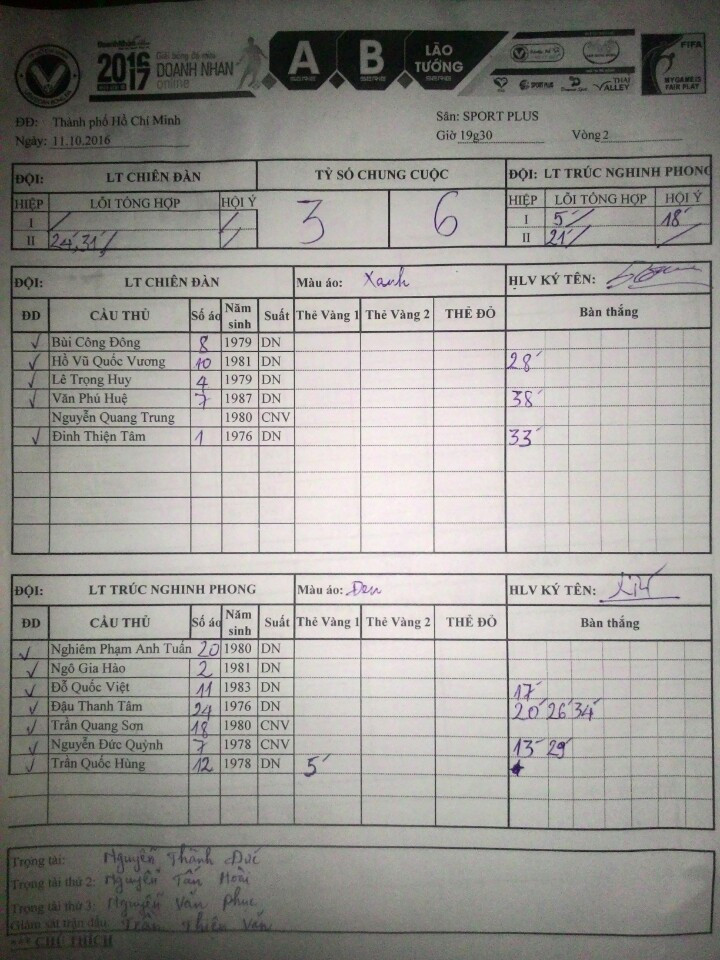 DoanhNhân
2016 2017
Giải bóng đá mini
DOANH NHÂN
online
A SERIE
B SERIE
LÃO TƯỚNG SERIE
SPORT PLUS
THAI VALLEY
FIFA
MY GAME IS FAIR PLAY
ĐĐ: Thành phố Hồ Chí Minh Sân: SPORT PLUS
Ngày: 11.10.2016 Giờ 19g30 Vòng 2
ĐỘI: LT CHIÊN ĐÀN TỶ SỐ CHUNG CUỘC ĐỘI: LT TRÚC NGHINH PHONG
HIỆP LỖI TỔNG HỢP HỘI Ý 3 6 HIỆP LỖI TỔNG HỢP HỘI Ý
I / / I 5' / 18'
II 24', 31' / / II 21' / /
ĐỘI: LT CHIÊN ĐÀN Màu áo: Xanh HLV KÝ TÊN:
ĐD CẦU THỦ Số áo Năm sinh Suất Thẻ Vàng 1 Thẻ Vàng 2 THẺ ĐỎ Bàn thắng
✓ Bùi Công Đông 8 1979 DN
✓ Hồ Vũ Quốc Vương 10 1981 DN 28'
✓ Lê Trọng Huy 4 1979 DN
✓ Văn Phú Huệ 7 1987 DN 38'
Nguyễn Quang Trung 1980 CNV
✓ Đinh Thiện Tâm 1 1976 DN 33'
ĐỘI: LT TRÚC NGHINH PHONG Màu áo: Đen HLV KÝ TÊN:
ĐD CẦU THỦ Số áo Năm sinh Suất Thẻ Vàng 1 Thẻ Vàng 2 THẺ ĐỎ Bàn thắng
✓ Nghiêm Phạm Anh Tuấn 20 1980 DN
✓ Ngô Gia Hào 2 1981 DN
✓ Đỗ Quốc Việt 11 1983 DN 17'
✓ Đậu Thanh Tâm 24 1976 DN 20' 26' 34'
✓ Trần Quang Sơn 18 1980 CNV
✓ Nguyễn Đức Quỳnh 7 1978 CNV 13' 29'
✓ Trần Quốc Hùng 12 1978 DN 5'
Trọng tài: Nguyễn Thành Đức
Trọng tài thứ 2: Nguyễn Tấn Hoài
Trọng tài thứ 3: Nguyễn Văn Phúc
Giám sát trận đấu: Trần Thiện Văn
*** CHÚ THÍCH